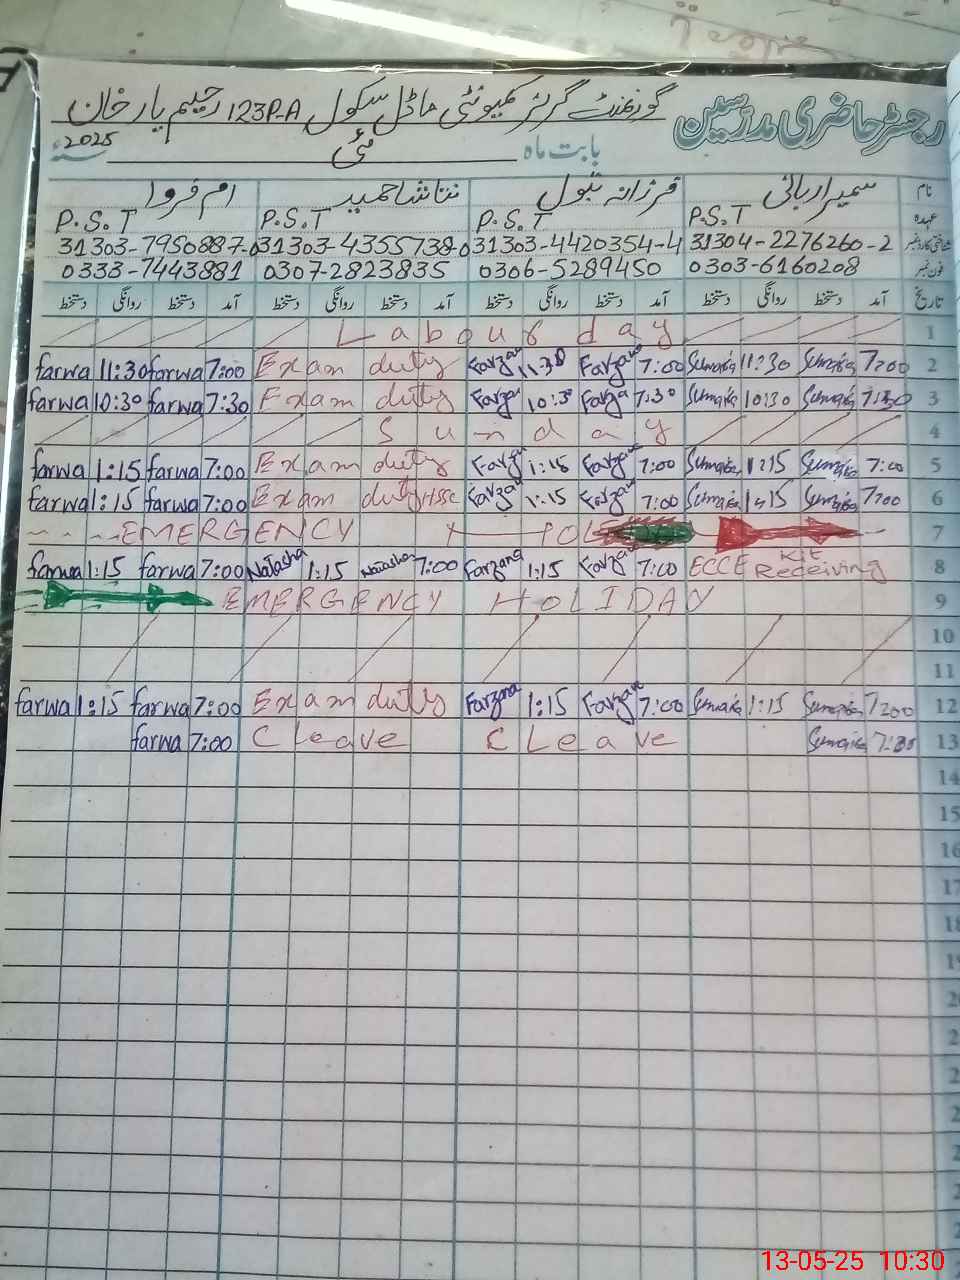 رجسٹر حاضری مدرسین
گورنمنٹ گرلز کمیونٹی ماڈل سکول 123P-A رحیم یار خان
بابت ماہ مئی 2025
نام سمیرا ربانی فرزانہ بتول نتاشا حمید ام فروا
عہدہ P.S.T P.S.T P.S.T P.S.T
شناختی کارڈ نمبر 31304-2276260-2 31303-4420354-4 31303-4355738-0 31303-7950887-0
فون نمبر 0303-6160208 0306-5289450 0307-2823835 0333-7443881
تاریخ آمد دستخط روانگی دستخط آمد دستخط روانگی دستخط آمد دستخط روانگی دستخط آمد دستخط روانگی دستخط
Labour day 1
farwa 11:30 farwa 7:00 Exam duty Farzan 11:30 Farzana 7:00 Sumaira 11:30 Sumaira 7:00 2
farwa 10:30 farwa 7:30 Exam duty Farzan 10:30 Farzan 7:30 Sumaira 10:30 Sumaira 7:30 3
Sunday 4
farwa 1:15 farwa 7:00 Exam duty Farzan 1:15 Farzan 7:00 Sumaira 1:15 Sumaira 7:00 5
farwa 1:15 farwa 7:00 Exam duty HSSC Farzan 1:15 Farzan 7:00 Sumaira 1:15 Sumaira 7:00 6
EMERGENCY HOL 7
farwa 1:15 farwa 7:00 Natasha 1:15 Natasha 7:00 Farzana 1:15 Farzan 7:00 ECCE Kit Receiving 8
EMERGENCY HOLIDAY 9
10
11
farwa 1:15 farwa 7:00 Exam duty Farzana 1:15 Farzan 7:00 Sumaira 1:15 Sumaira 7:00 12
farwa 7:00 C leave C Leave Sumaira 7:00 13
14
15
16
17
18
19
13-05-25 10:30